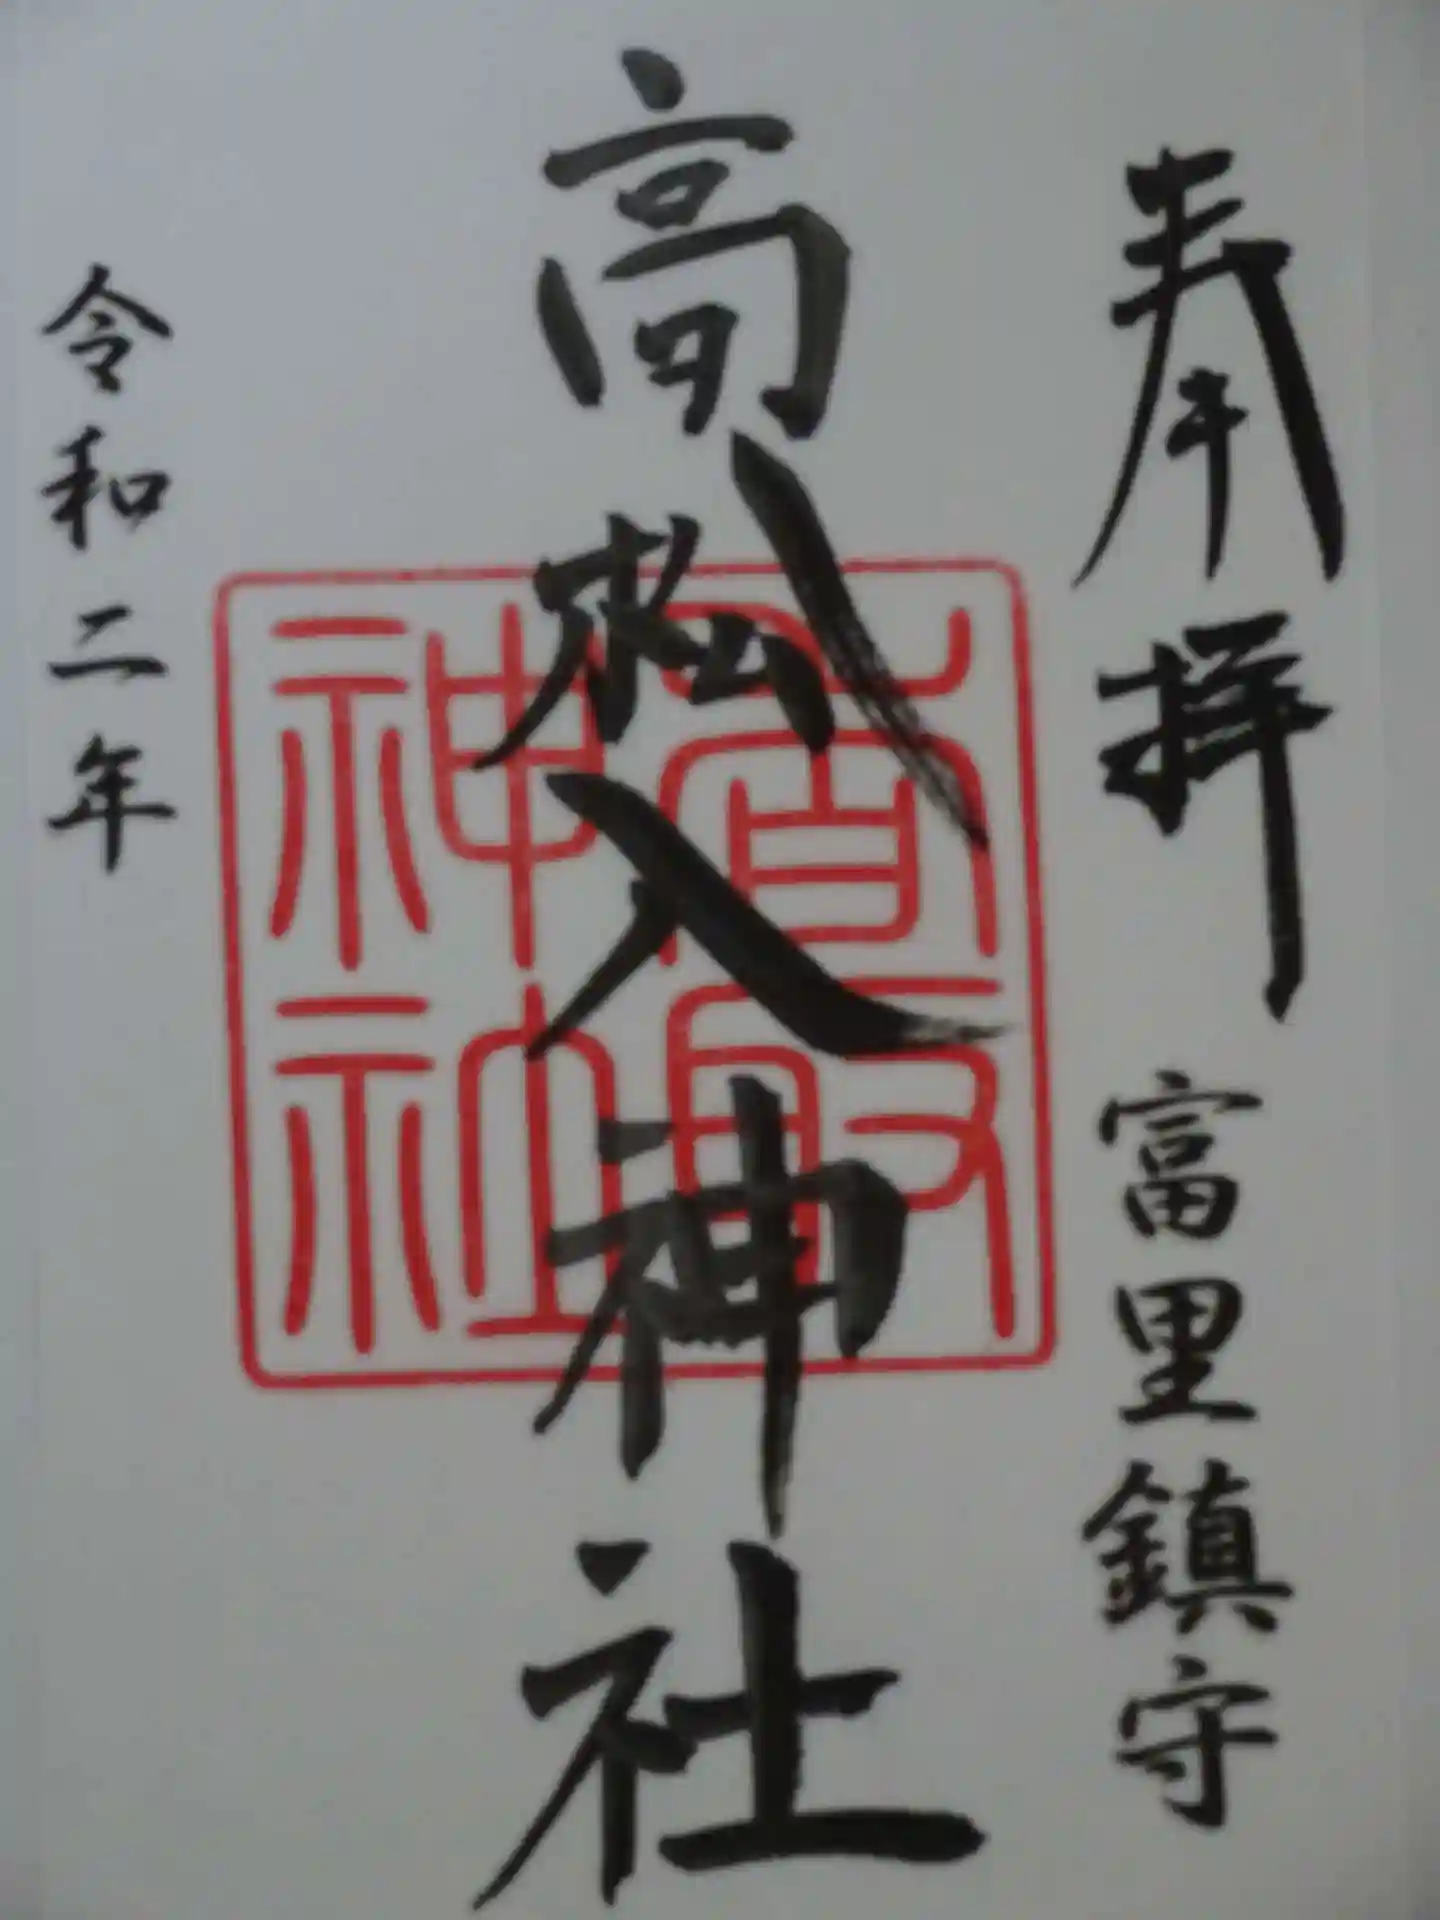 奉拝 富里鎮守
高松入神社
令和二年
神社